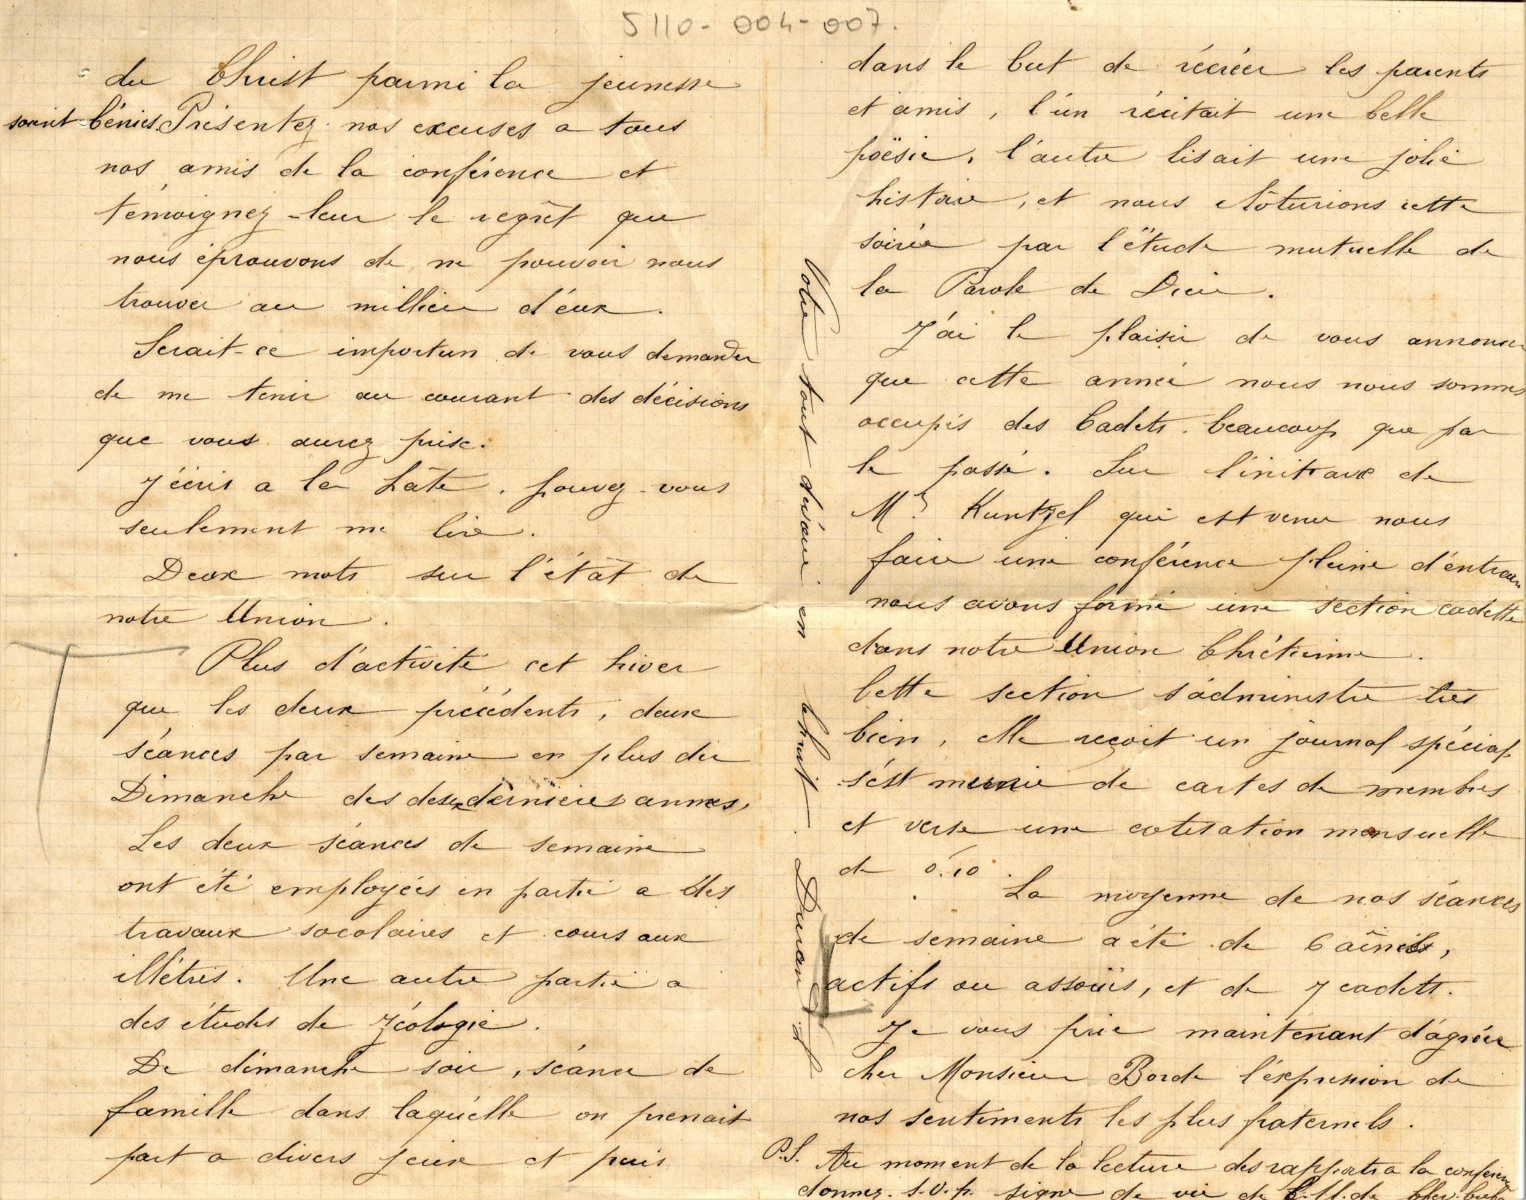 5110-004-007.
du Christ parmi la jeunesse
soient bénies. Présentez nos excuses a tous
nos amis de la conférence et
témoignez-leur le regrèt que
nous éprouvons de ne pouvoir nous
trouver au millieu d'eux.
Serait-ce importun de vous demander
de me tenir au courant des décisions
que vous aurez prise.
J'écris a la hâte. pouvez-vous
seulement me lire.
Deux mots sur l'état de
notre Union.
Plus d'activité cet hiver
que les deux précédents, deux
séances par semaine en plus du
Dimanche des dernières annees,
Les deux séances de semaine
ont été employées en partie a des
travaux socolaires et cours aux
illétrés. Une autre partie a
des études de
De dimanche soir, séance de
famille dans laquélle on prenait
part a divers jeux et puis
dans le but de récréer les parents
et amis, l'un récitait une belle
poësie, l'autre lisait une jolie
histoire, et nous clôturions cette
soirée par l'étude mutuelle de
la Parole de Dieu.
J'ai le plaisir de vous annoncer
que cette année nous nous sommes
occupés des Cadets beaucoup que par
le passé. Sur de
Mr. Kuntzel qui est venu nous
faire une conférence pleine d'entrain
nous avons formé une section cadette
dans notre Union Chrétienne.
Cette section s'administre très
bien, elle reçoit un journal spécial,
s'est munie de cartes de membres
et verse une cotisation mensuelle
de 0.10.
La moyenne de nos séances
de semaine a été de 6 aînés,
actifs ou associés, et de 7 cadets.
Je vous prie maintenant d'agréer
cher Monsieur Borde l'éxpression de
nos sentiments les plus fraternels.
Votre tout dévoué en Christ. Durand
P.S. Au moment de la lecture des rapports a la conféren
donnez s.v.p. signe de vie de